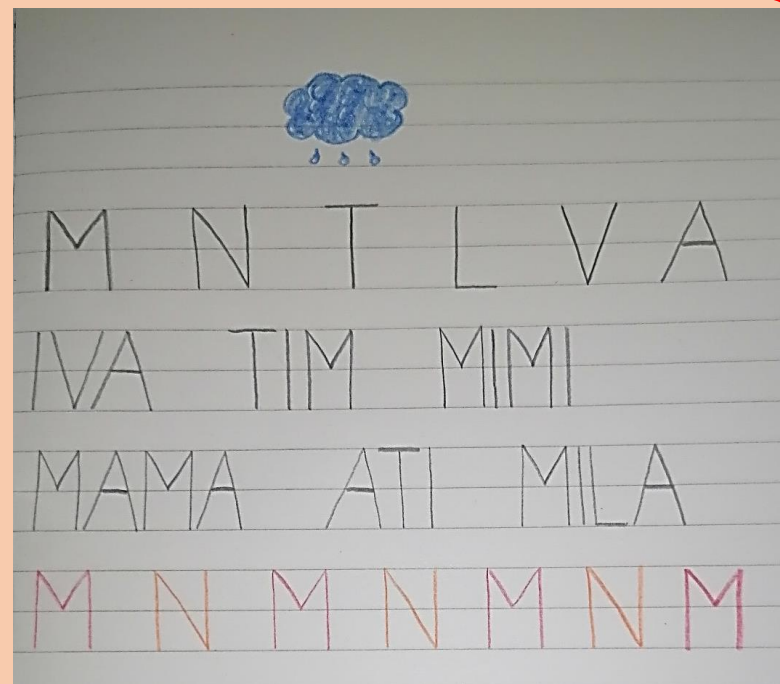 M N T L V A
IVA TIM MIMI
MAMA ATI MILA
M N M N M N M